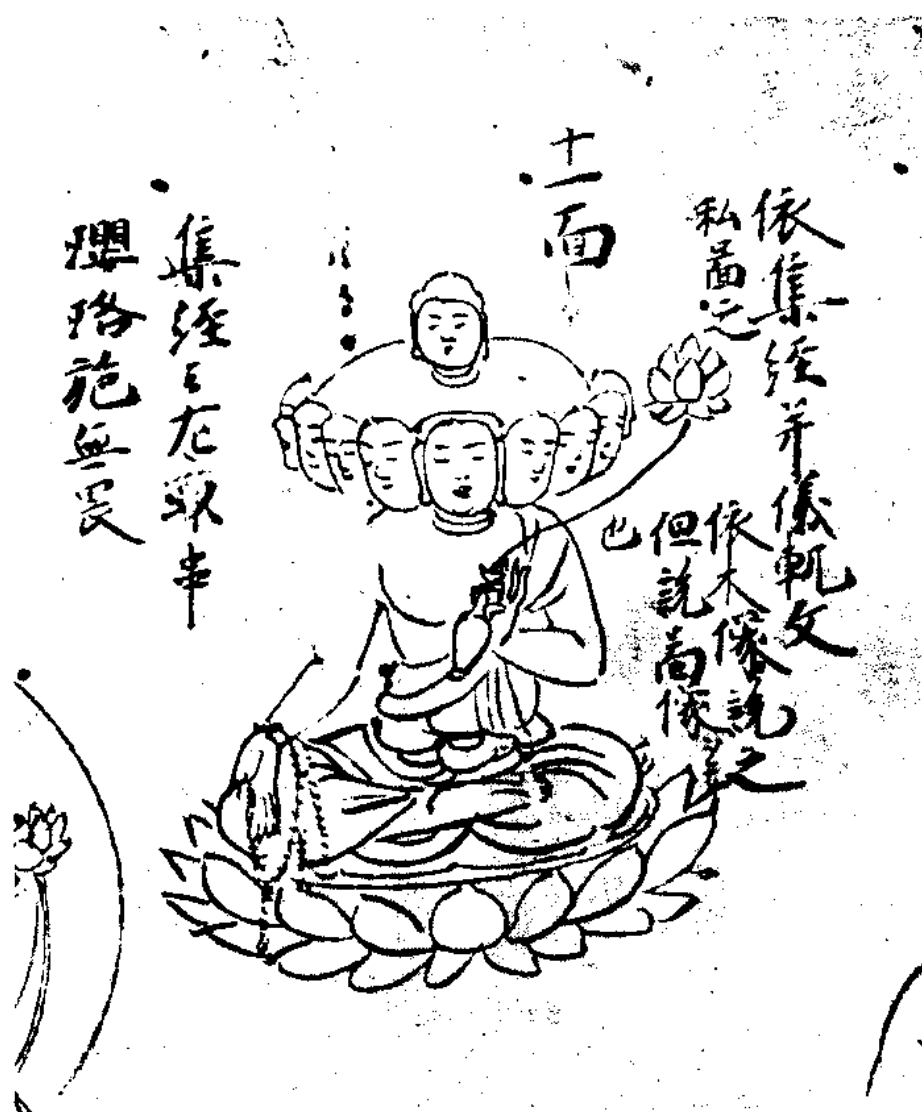 依集經并儀軌文
私啚之
依木像説之
但説啚像
也
十一面
集經云右串
瓔珞施無畏